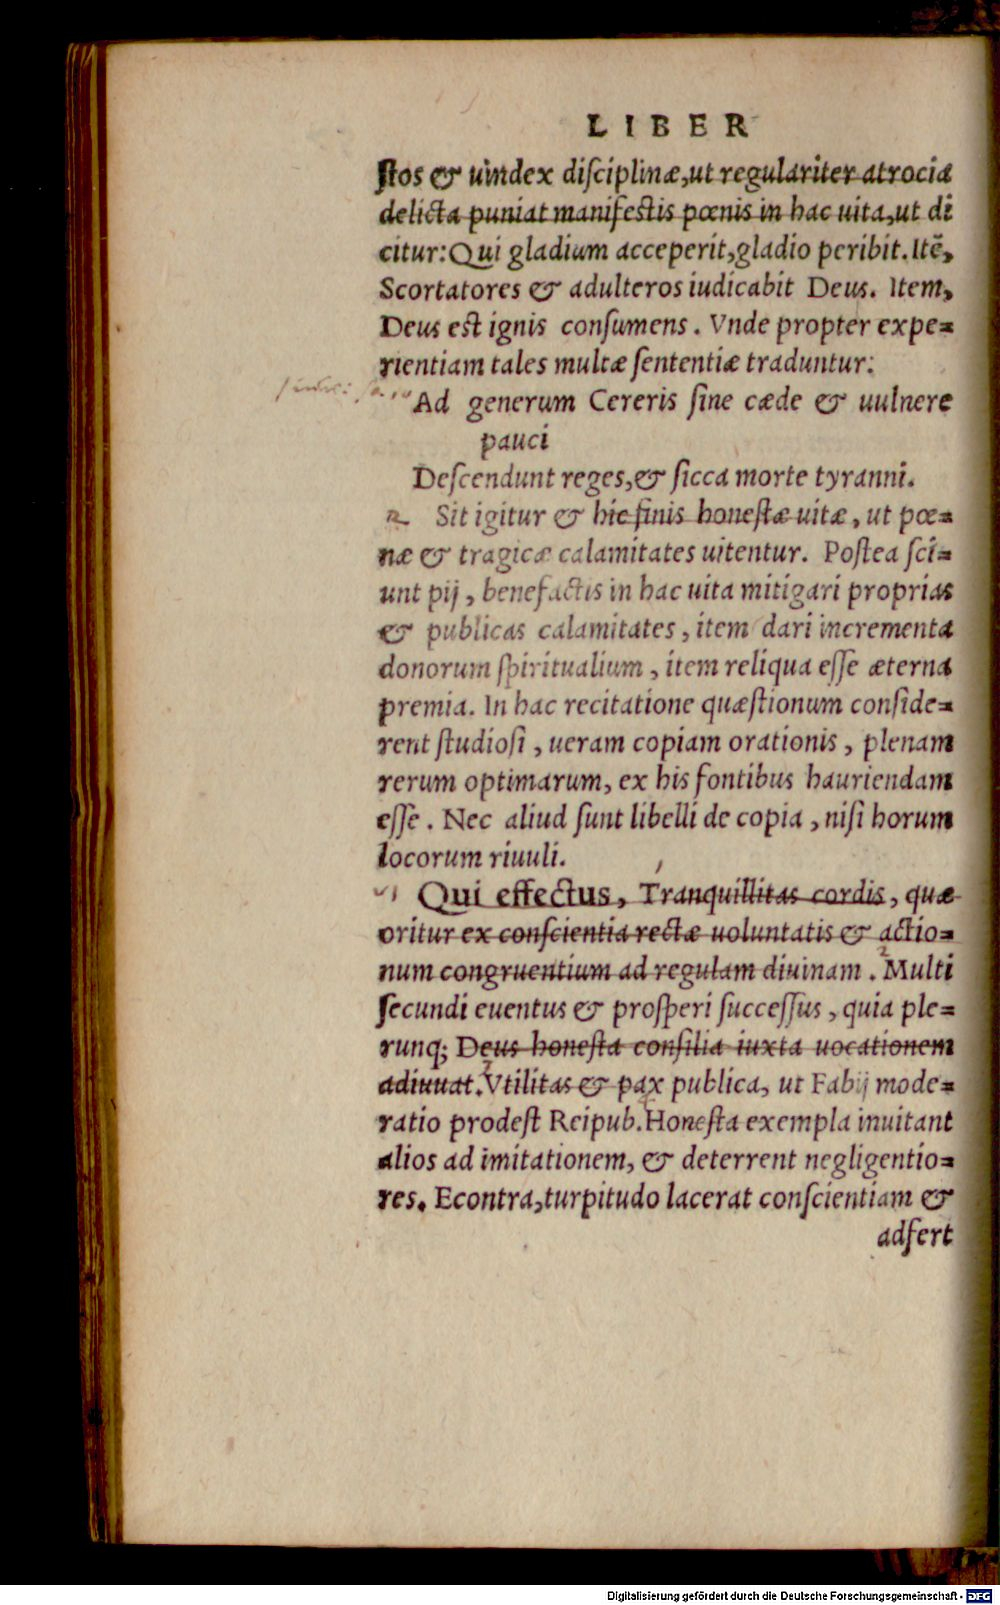 LIBER
ſtos & uindex diſciplinæ,ut regulariter atrocia
delicta puniat manifeſtis pœnis in hac uita,ut di
citur:Qui gladium acceperit,gladio peribit.Itē,
Scortatores & adulteros iudicabit Deus. Item,
Deus est ignis conſumens. Vnde propter expe=
rientiam tales multæ ſententiæ traduntur:
Ad generum Cereris ſine cæde & uulnere
pauci
Deſcendunt reges,& ſicca morte tyranni.
2 Sit igitur & hic finis honeſtæ uitæ, ut pœ=
næ & tragicæ calamitates uitentur. Poſtea ſci=
unt pij, benefactis in hac uita mitigari proprias
& publicas calamitates, item dari incrementa
donorum ſpiritualium, item reliqua eſſe æterna
premia. In hac recitatione quæſtionum conſide=
rent ſtudioſi, ueram copiam orationis, plenam
rerum optimarum, ex his fontibus hauriendam
eſſe. Nec aliud ſunt libelli de copia, niſi horum
locorum riuuli.
Qui effectus, Tranquillitas cordis, quæ
oritur ex conſcientia rectæ uoluntatis & actio=
num congruentium ad regulam diuinam. 2 Multi
ſecundi euentus & proſperi ſucceſſus, quia ple=
runq; Deus honeſta conſilia iuxta uocationem
adiuuat. Vtilitas & pax publica, ut Fabij mode=
ratio prodeſt Reipub. Honeſta exempla inuitant
alios ad imitationem, & deterrent negligentio=
res. Econtra,turpitudo lacerat conſcientiam &
adfert
Digitalisierung gefördert durch die Deutsche Forschungsgemeinschaft - DFG